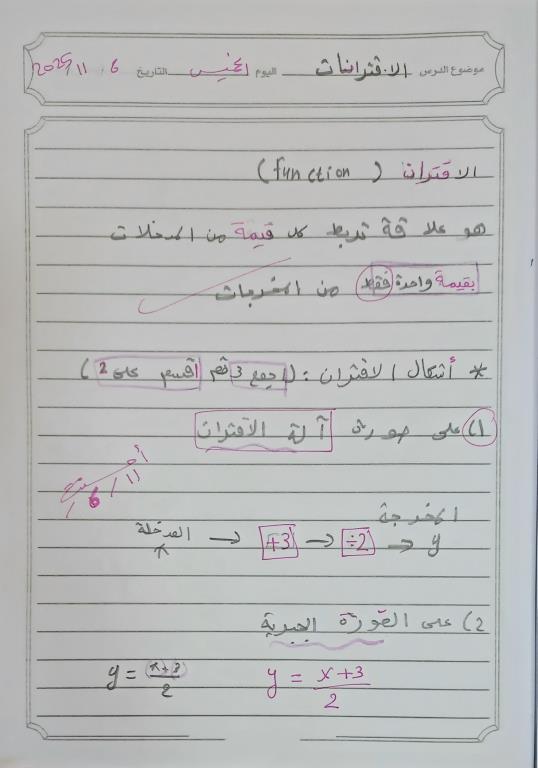 موضوع الدرس الاقترانات اليوم الخميس التاريخ 6/11/2025
الاقتران (function)
هو علاقة تربط كل قيمة من المدخلات
بقيمة واحدة فقط من المخرجات
* أشكال الاقتران: (اجمع 3 ثم اقسم على 2)
1) على صورة آلة الاقتران
أحسنت
6/11
المخرجة
المدخلة
x → +3 → ÷2 → y
2) على الصورة الجبرية
y = x+3/2 y = x+3/2